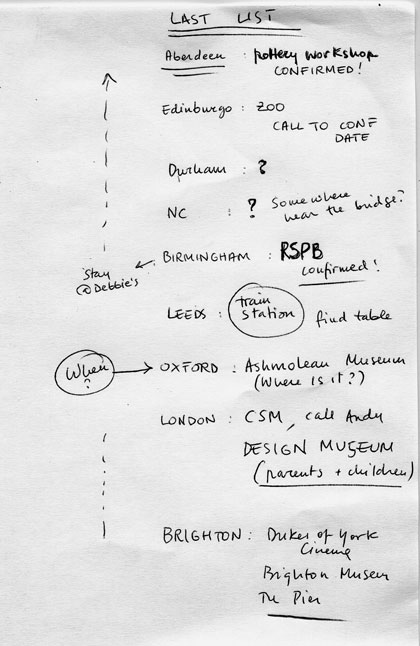 LAST LIST
Aberdeen : pottery workshop
CONFIRMED!
Edinburgo : ZOO
CALL TO CONF
DATE
Durham : ?
NC : ? Somewhere
near the bridge?
BIRMINGHAM : RSPB
confirmed!
Stay
@Debbie's
LEEDS : train
station find table
When
?
OXFORD : Ashmolean Museum
(Where is it?)
LONDON : CSM, call Andy
DESIGN MUSEUM
(parents + children)
BRIGHTON : Dukes of York
Cinema
Brighton Museum
The Pier